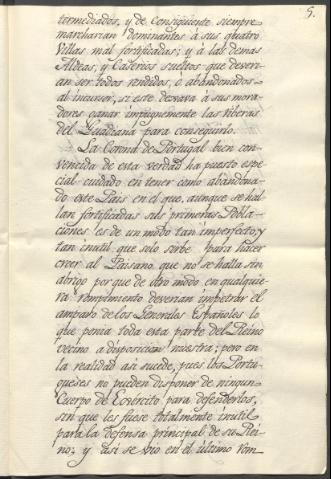 5.
termediados, y de consiguiente siempre
marcharian dominantes à sus quatro
Villas mal fortificadas; y à las demas
Aldeas, y Caserios sueltos que deveri-
an ser todos rendidos, ò abandonados
al incursor, si este dexava à sus mora-
dores ganar impugnemente las riberas
del Guadiana para conseguirlo.
La Corona de Portugal bien con-
vencida de esta verdad ha puesto espe-
cial cuidado en tener como abandona-
do este Pais en el que, aunque se hal-
lan fortificadas sus primeras Pobla-
ciones es de un modo tan imperfecto, y
tan inutil que solo sirbe para hacer
creer al Paisano que no se halla sin
abrigo por que de otro modo en qualquie-
ra rompimiento deverian impetrar el
amparo de los Generales Españoles lo
que ponia toda esta parte del Reino
vecino a disposicion nuestra; pero en
la realidad asi sucede, pues los Portu-
gueses no pueden disponer de ningun
Cuerpo de Exercito para defenderlos,
sin que les fuese totalmente inutil
para la defensa principal de su Rei-
no; y asi se vio en el ultimo rom-